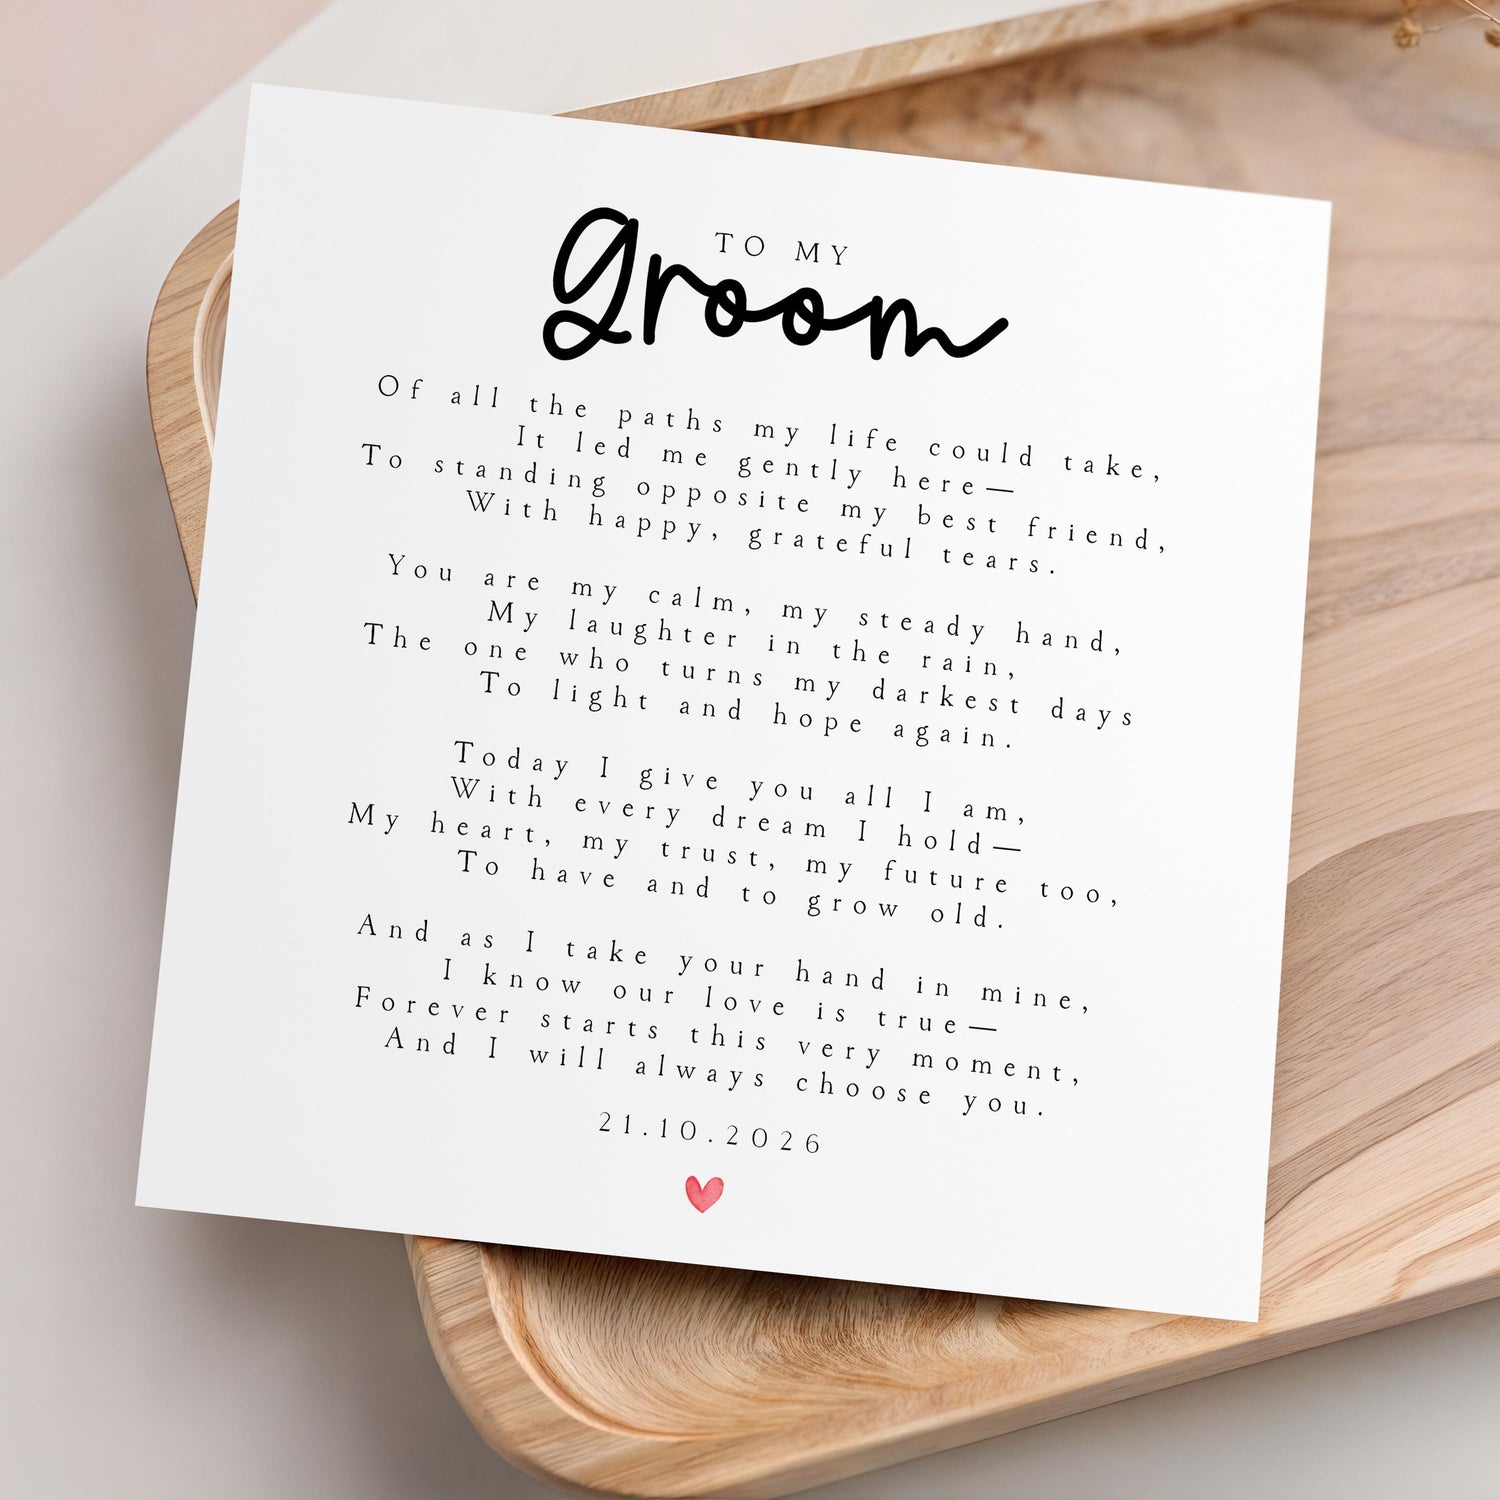 TO MY
groom
Of all the paths my life could take,
It led me gently here—
To standing opposite my best friend,
With happy, grateful tears.
You are my calm, my steady hand,
My laughter in the rain,
The one who turns my darkest days
To light and hope again.
Today I give you all I am,
With every dream I hold—
My heart, my trust, my future too,
To have and to grow old.
And as I take your hand in mine,
I know our love is true—
Forever starts this very moment,
And I will always choose you.
21.10.2026